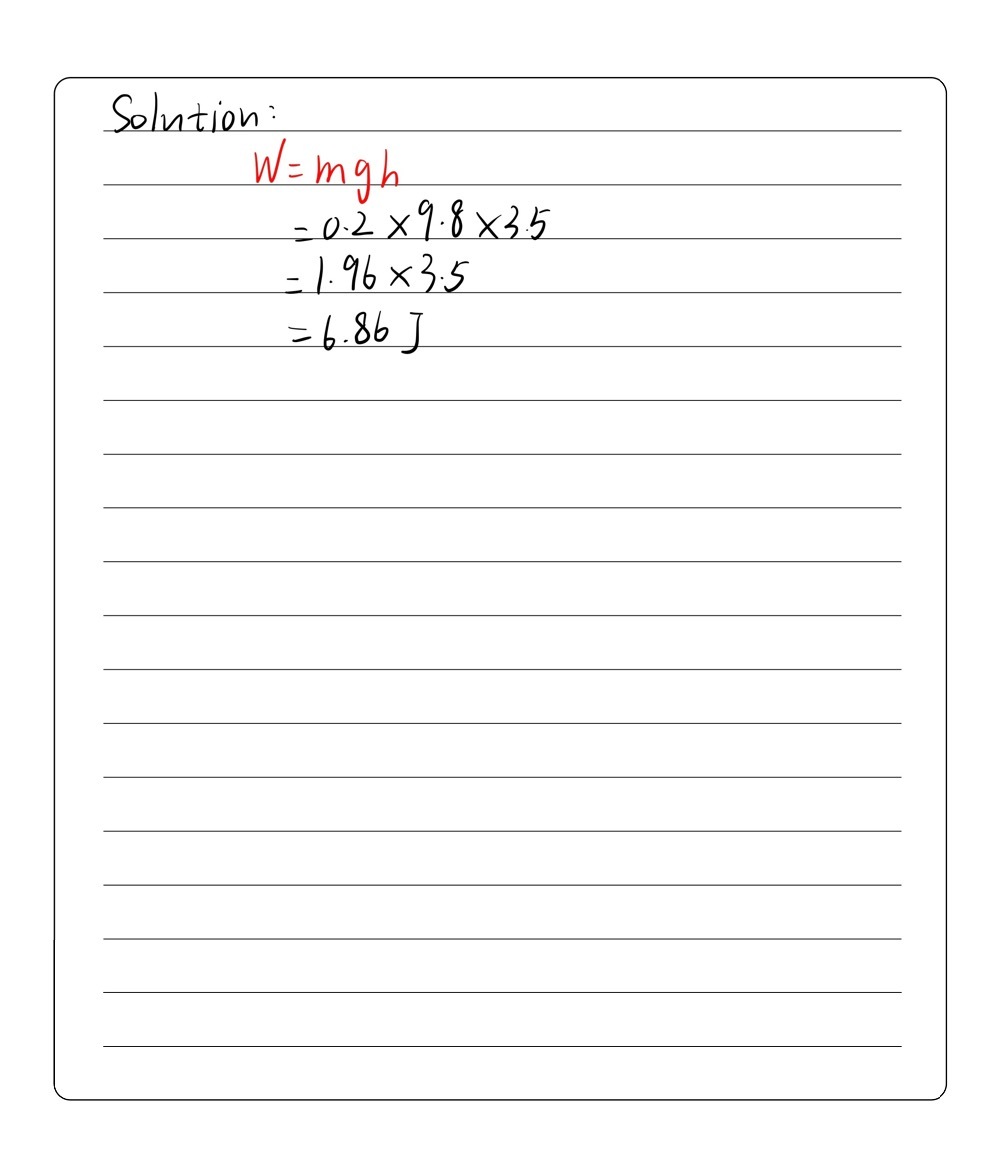 Solution:
W=mgh
=0.2×9.8×3.5
=1.96×3.5
=6.86 J